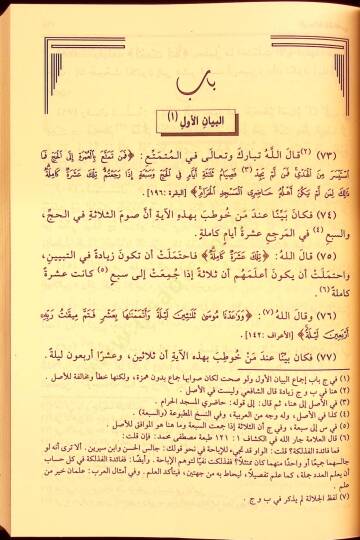 باب
البيان الأول (١)
(٧٣) (٢)قالَ اللَّهُ تباركَ وتعالى في المتمتِّعِ: ﴿فَمَن تَمَتَّعَ بِالْعُمْرَةِ إِلَى الْحَجِّ فَمَا
اسْتَيْسَرَ مِنَ الْهَدْيِ فَمَن لَّمْ يَجِدْ (٣) فَصِيَامُ ثَلَاثَةِ أَيَّامٍ فِي الْحَجِّ وَسَبْعَةٍ إِذَا رَجَعْتُمْ تِلْكَ عَشَرَةٌ كَامِلَةٌ
ذَلِكَ لِمَن لَّمْ يَكُنْ أَهْلُهُ حَاضِرِي الْمَسْجِدِ الْحَرَامِ﴾ [البقرة: ١٩٦].
(٧٤) فكانَ بَيِّنًا عندَ مَن خُوطِبَ بهذهِ الآيةِ أنَّ صومَ الثلاثةِ في الحجِّ،
والسبعِ (٤) في المَرجِعِ عشرةُ أيامٍ كاملةٍ.
(٧٥) قالَ اللهُ: ﴿تِلْكَ عَشَرَةٌ كَامِلَةٌ﴾ فاحتمَلَتْ أن تكونَ زيادةً في التبيينِ،
واحتملَتْ أن يكونَ أعلَمَهُم أن ثلاثةً إذا جُمِعَتْ إلى سبعٍ (٥) كانت عشرةً
كاملةً (٦).
(٧٦) وقالَ اللهُ (٧): ﴿وَوَاعَدْنَا مُوسَى ثَلَاثِينَ لَيْلَةً وَأَتْمَمْنَاهَا بِعَشْرٍ فَتَمَّ مِيقَاتُ رَبِّهِ
أَرْبَعِينَ لَيْلَةً﴾ [الأعراف: ١٤٢].
(٧٧) فكانَ بيِّنًا عندَ مَنْ خُوطِبَ بهذه الآيةِ أن ثلاثين، وعشرًا أربعون ليلةً.
(١) في ج باب إجماع البيان الأول ولو صحت لكان صوابها جماع بدون همزة، ولكنها خطأ ومخالفة للأصل.
(٢) هنا في ب و ج زيادة قال الشافعي وليست في الأصل.
(٣) في الأصل إلى هنا، ثم قال: إلى قوله: حاضري المسجد الحرام
(٤) كذا في الأصل، وله وجه من العربية، وفي النسخ المطبوعة (والسبعة).
(٥) في س إلى سبعة، وفي ج أن الثلاثة إذا جمعت السبعة وما هنا هو الموافق للأصل.
(٦) قال العلامة جار الله في الكشاف ١: ١٢١ طبعة مصطفى محمد: فإن قلت:
فما فائدة الفذلكة؟ قلت: الواو قد تجيء للإباحة في نحو قولك: جالس الحسن وابن سيرين. ألا ترى أنه لو
جالسهما جميعًا أو واحدًا منهما كان ممتثلًا؟ ففذلكت نفيًا لتوهم الإباحة. وأيضًا: ففائدة الفذلكة في كل حساب
أن يعلم العدد جملة، كما علم تفصيلًا، ليحاط به من جهتين، فيتأكد العلم. وفي أمثال العرب: علمان خير من
علم .
(٧) لفظ الجلالة لم يذكر في ب و ج .